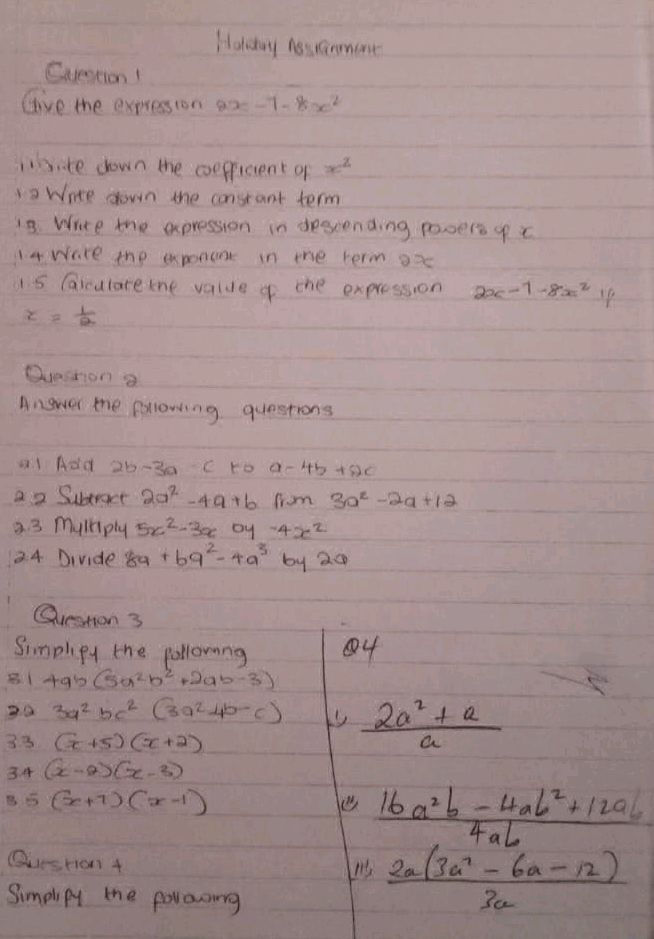 Holiday Assignment
Question 1
Give the expression 2x - 7 - 8x²
1.1 Write down the coefficient of x²
1.2 Write down the constant term
1.3 Write the expression in descending powers of x
1.4 Write the exponent in the term 2x
1.5 Calculate the value of the expression 2x - 7 - 8x² if
x = ½
Question 2
Answer the following questions
2.1 Add 2b - 3a - c to a - 4b + 2c
2.2 Subtract 2a² - 4a + b from 3a² - 2a + 12
2.3 Multiply 5x² - 3x by -4x²
2.4 Divide 8a + 6a² - 4a³ by 2a
Question 3
Simplify the following
3.1 4ab (5a²b² + 2ab - 3)
3.2 3a²bc² (3a² 4b - c)
3.3 (x + 5)(x + 2)
3.4 (x - 2)(x - 3)
3.5 (x + 7)(x - 1)
Question 4
Simplify the following
Q4
i) 2a² + a
a
ii) 16a²b - 4ab² + 12ab
4ab
iii) 2a(3a² - 6a - 12)
3a